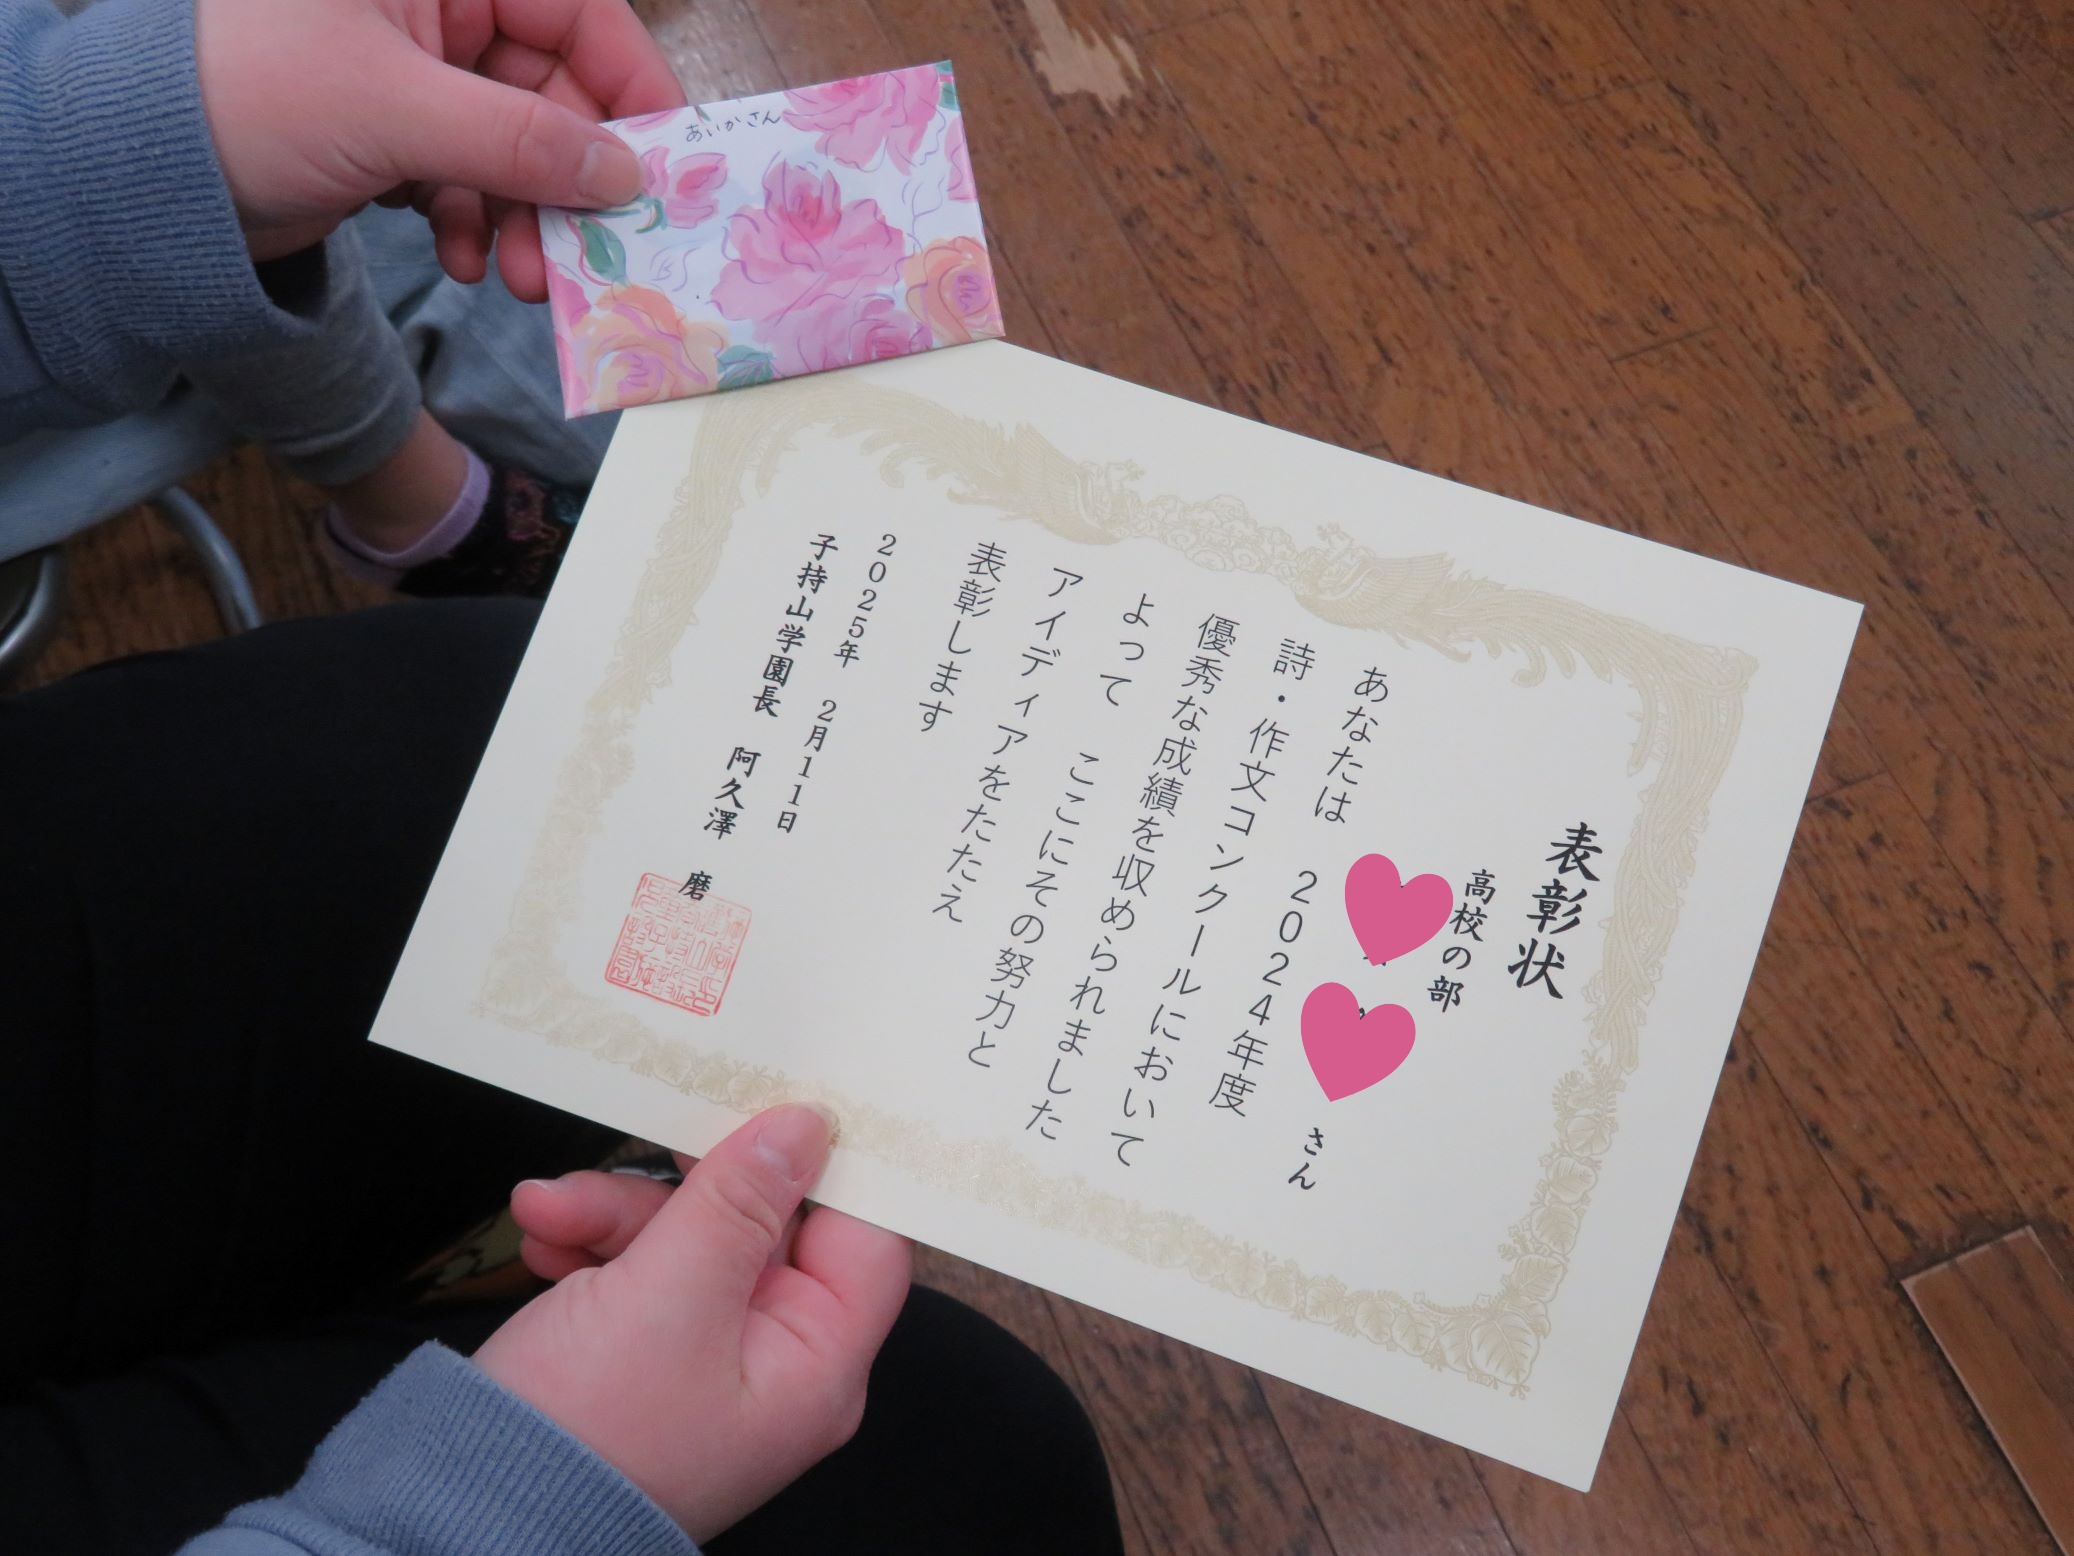 あいかさん
表彰状
高校の部
さん
あなたは 2024年度
詩・作文コンクールにおいて
優秀な成績を収められました
よって ここにその努力と
アイディアをたたえ
表彰します
2025年 2月11日
子持山学園長 阿久澤 磨